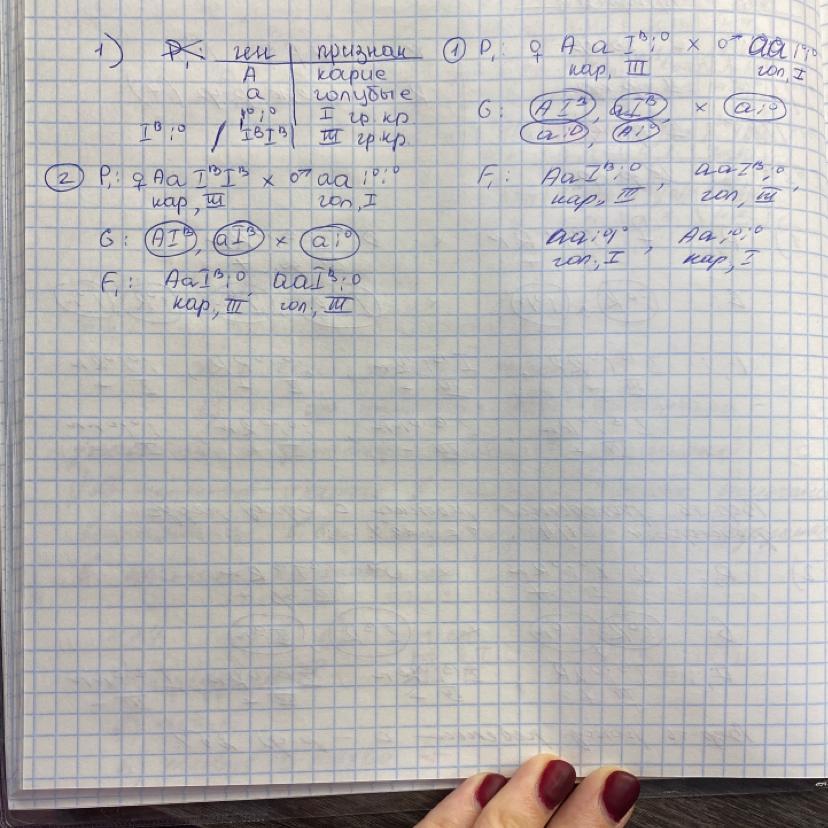 1) P₁: ген | признак
A | карие
a | голубые
i⁰i⁰ | I гр. кр
Iᴮi⁰ / IᴮIᴮ | III гр. кр.
② P₁: ♀ Aa IᴮIᴮ × ♂ aa i⁰i⁰
кар, III гол, I
G: AIᴮ, aIᴮ × ai⁰
F₁: AaIᴮi⁰, aaIᴮi⁰
кар, III гол., III
① P₁: ♀ A a Iᴮi⁰ × ♂ aa i⁰i⁰
кар, III гол, I
G: AIᴮ, aIᴮ, × ai⁰
ai⁰, Ai⁰
F₁: AaIᴮi⁰, aaIᴮi⁰,
кар., III гол, III
aai⁰i⁰, Aai⁰i⁰
гол., I кар, I